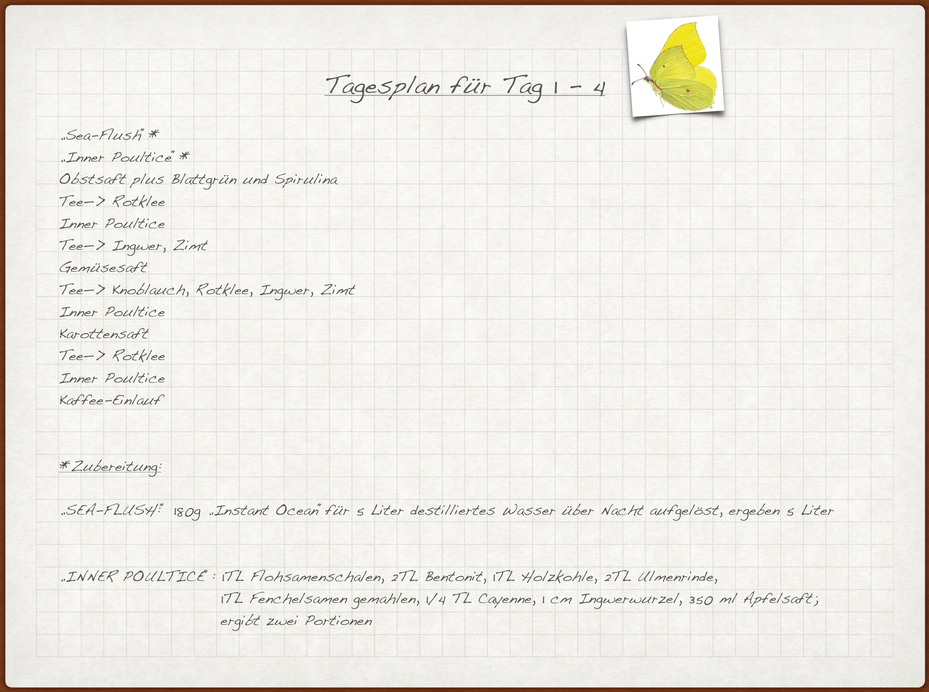 Tagesplan für Tag 1 - 4
„Sea-Flush" *
„Inner Poultice" *
Obstsaft plus Blattgrün und Spirulina
Tee-> Rotklee
Inner Poultice
Tee-> Ingwer, Zimt
Gemüsesaft
Tee-> Knoblauch, Rotklee, Ingwer, Zimt
Inner Poultice
Karottensaft
Tee-> Rotklee
Inner Poultice
Kaffee-Einlauf
* Zubereitung:
„SEA-FLUSH": 180g „Instant Ocean" für 5 Liter destilliertes Wasser über Nacht aufgelöst, ergeben 5 Liter
„INNER POULTICE" : 1TL Flohsamenschalen, 2TL Bentonit, 1TL Holzkohle, 2TL Ulmenrinde,
1TL Fenchelsamen gemahlen, 1/4 TL Cayenne, 1 cm Ingwerwurzel, 350 ml Apfelsaft;
ergibt zwei Portionen